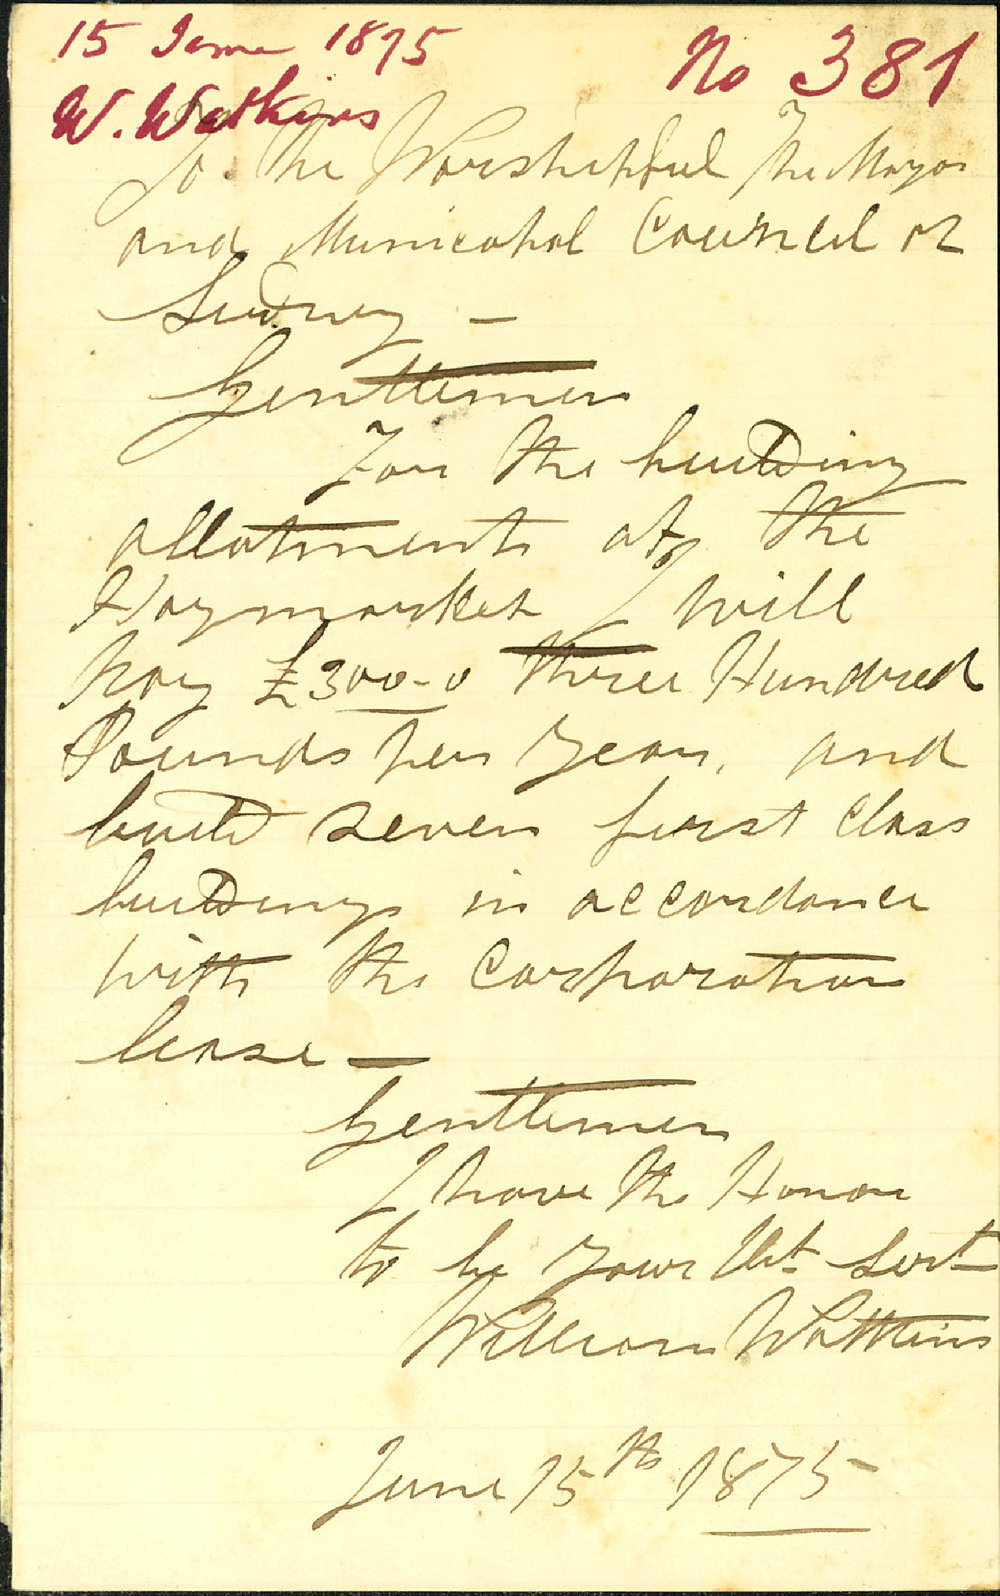 15 June 1875
No 381
W. Watkins
To The Worshipful The Mayor
and Municipal Council of
Sydney –
Gentlemen
For the building
allotments at the
Haymarket I will
pay £300-0 Three Hundred
Pounds per Year, and
build seven first class
buildings in accordance
with the Corporation
lease –
Gentlemen
I have the Honor
to be Your Obt Servt
William Watkins
June 15th 1875